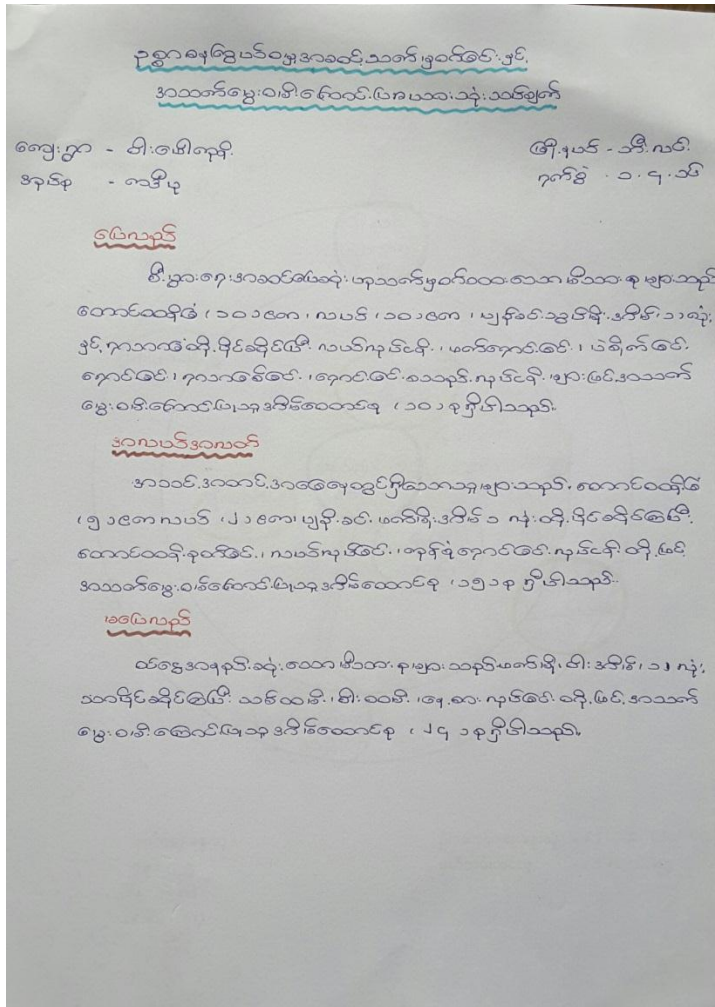 ဥစ္စာဓနကြွယ်ဝမှုအဆင့်သတ်မှတ်ခြင်းနှင့်
အသက်မွေးဝမ်းကျောင်းပြုလုပ်သောသုံးသပ်ချက်
ကျေးရွာ - ဝါး
မြို့နယ် - ဘီးလင်း
အုပ်စု -
ရက်စွဲ - ၁.၄.၁၆
ပြေလည်
စီးပွားရေးအဆင်ပြေဆုံးဟုသတ်မှတ်ထားသောမိသားစုများသည်
တောင်ယာခြံ (၁၀) ဧက၊ လယ် (၁၀) ဧက၊ ပျဉ်ခင်းသွပ်မိုးအိမ် (၁) လုံး
နှင့် ရာဘာခြံတို့ပိုင်ဆိုင်ပြီး လယ်လုပ်ငန်း၊ ဖက်ရောင်းခြင်း၊ ပဲစိုက်ခြင်း
ရောင်းခြင်း၊ ရာဘာခြစ်ခြင်း၊ ရောင်းခြင်း စသည့်လုပ်ငန်းများဖြင့်အသက်
မွေးဝမ်းကျောင်းပြုသူအိမ်ထောင်စု (၁၀) စုရှိပါသည်။
အလယ်အလတ်
အသင့်အတင့်အခြေနေတွင်ရှိသောသူများသည် တောင်ယာခြံ
(၅) ဧကလယ် (၂) ဧက၊ ပျဉ်ခင်း ဖက်မိုးအိမ် ၁ လုံးတို့ပိုင်ဆိုင်ကြပြီး
တောင်ယာခုတ်ခြင်း၊ လယ်လုပ်ခြင်း၊ ကုန်စုံရောင်းခြင်းလုပ်ငန်းတို့ဖြင့်
အသက်မွေးဝမ်းကျောင်းပြုသူအိမ်ထောင်စု (၁၅) စု ရှိပါသည်။
မပြေလည်
ဝင်ငွေအနည်းဆုံးသောမိသားစုများသည်ဖက်မိုးဝါးအိမ် (၁) လုံး
သာပိုင်ဆိုင်ကြပြီး သစ်ထမ်း၊ ဝါးထမ်း၊ နေ့စားလုပ်ခြင်းတို့ဖြင့်အသက်
မွေးဝမ်းကျောင်းပြုသူအိမ်ထောင်စု (၂၄) စုရှိပါသည်။